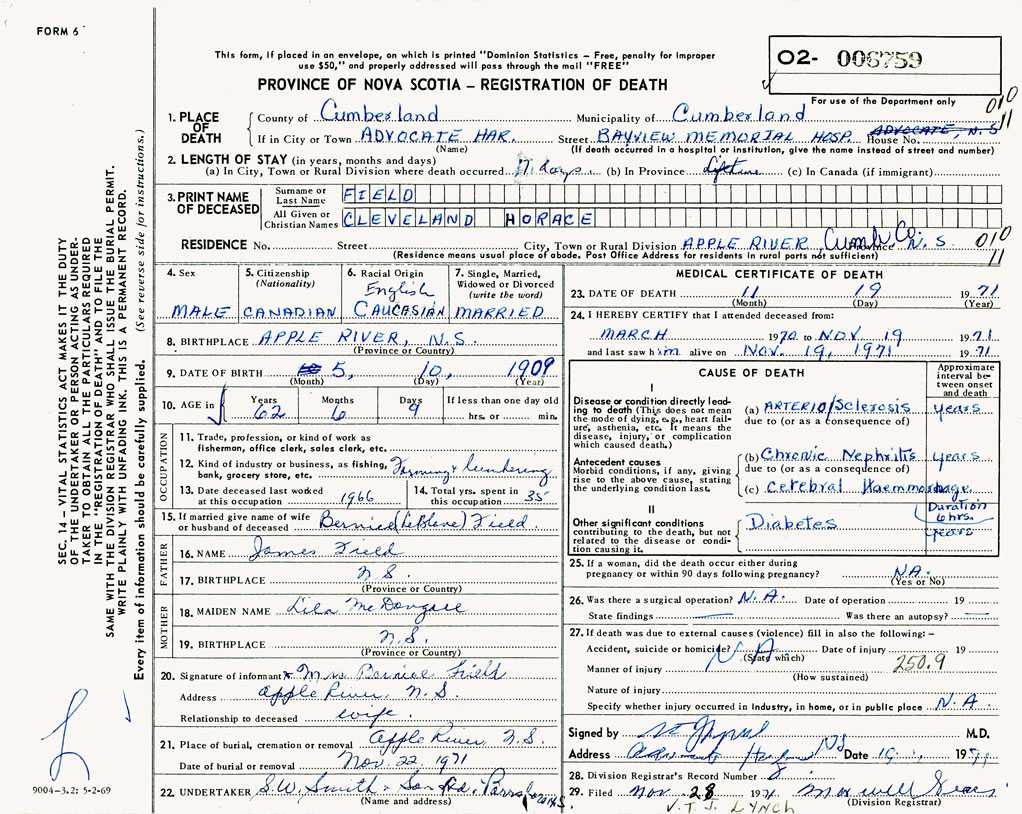 FORM 6
This form, if placed in an envelope, on which is printed "Dominion Statistics – Free, penalty for improper
use $50," and properly addressed will pass through the mail "FREE"
PROVINCE OF NOVA SCOTIA – REGISTRATION OF DEATH
02- 006759
For use of the Department only
010
11
1. PLACE OF DEATH
County of Cumberland Municipality of Cumberland
If in City or Town ADVOCATE HAR. Street BAYVIEW MEMORIAL HOSP. House No. ADVOCATE, N.S
(Name) (If death occurred in a hospital or institution, give the name instead of street and number)
2. LENGTH OF STAY (in years, months and days)
(a) In City, Town or Rural Division where death occurred 17 days (b) In Province Lifetime (c) In Canada (if immigrant)
3. PRINT NAME OF DECEASED
Surname or Last Name FIELD
All Given or Christian Names CLEVELAND HORACE
RESIDENCE No. Street City, Town or Rural Division APPLE RIVER Cumb. Co. Province N.S. 010
11
(Residence means usual place of abode. Post Office Address for residents in rural parts not sufficient)
4. Sex
MALE
5. Citizenship
(Nationality)
CANADIAN
6. Racial Origin
English
CAUCASIAN
7. Single, Married,
Widowed or Divorced
(write the word)
MARRIED
8. BIRTHPLACE APPLE RIVER, N.S.
(Province or Country)
9. DATE OF BIRTH 5, 10, 1909
(Month) (Day) (Year)
10. AGE in
Years Months Days If less than one day old
62 6 9 hrs. or min.
OCCUPATION
11. Trade, profession, or kind of work as
fisherman, office clerk, sales clerk, etc.
12. Kind of industry or business, as fishing,
bank, grocery store, etc. Farming & Lumbering
13. Date deceased last worked
at this occupation 1966
14. Total yrs. spent in
this occupation 35
15. If married give name of wife
or husband of deceased Bernice (LeBlanc) Field
FATHER
16. NAME James Field
17. BIRTHPLACE N S.
(Province or Country)
MOTHER
18. MAIDEN NAME Lila McDougall
19. BIRTHPLACE N.S.
(Province or Country)
20. Signature of informant x Mrs Bernice Field
Address Apple River, N.S.
Relationship to deceased wife.
21. Place of burial, cremation or removal Apple River, N.S.
Date of burial or removal Nov. 22, 1971
22. UNDERTAKER S.W. Smith & Son Ltd, Parrsboro N.S.
(Name and address)
MEDICAL CERTIFICATE OF DEATH
23. DATE OF DEATH 11 19 1971
(Month) (Day) (Year)
24. I HEREBY CERTIFY that I attended deceased from:
MARCH 1970 to NOV. 19 1971
and last saw him alive on Nov. 19, 1971 1971
CAUSE OF DEATH
Approximate
interval be-
tween onset
and death
I
Disease or condition directly lead-
ing to death (This does not mean
the mode of dying, e.g., heart fail-
ure, asthenia, etc. It means the
disease, injury, or complication
which caused death.)
(a) ARTERIO/Sclerosis years
due to (or as a consequence of)
Antecedent causes
Morbid conditions, if any, giving
rise to the above cause, stating
the underlying condition last.
(b) Chronic Nephritis years
due to (or as a consequence of)
(c) Cerebral Haemmorhage.
Duration
6 hrs.
II
Other significant conditions
contributing to the death, but not
related to the disease or condi-
tion causing it.
Diabetes years
25. If a woman, did the death occur either during
pregnancy or within 90 days following pregnancy? NA.
(Yes or No)
26. Was there a surgical operation? N.A. Date of operation 19
State findings Was there an autopsy?
27. If death was due to external causes (violence) fill in also the following: –
Accident, suicide or homicide? N A Date of injury 19
(State which)
Manner of injury 250.9
(How sustained)
Nature of injury
Specify whether injury occurred in industry, in home, or in public place N.A.
Signed by M.D.
Address Advocate Harbour NS Date 19
28. Division Registrar's Record Number 8
29. Filed Nov 28 1971 Maxwell
(Division Registrar)
V.T.J. LYNCH
SEC. 14 – VITAL STATISTICS ACT MAKES IT THE DUTY
OF THE UNDERTAKER OR PERSON ACTING AS UNDER-
TAKER TO OBTAIN ALL THE PARTICULARS REQUIRED
IN THE "REGISTRATION OF DEATH" AND TO FILE THE
SAME WITH THE DIVISION REGISTRAR WHO SHALL ISSUE THE BURIAL PERMIT.
WRITE PLAINLY WITH UNFADING INK. THIS IS A PERMANENT RECORD.
Every item of information should be carefully supplied. (See reverse side for instructions.)
9004-3.2: 5-2-69